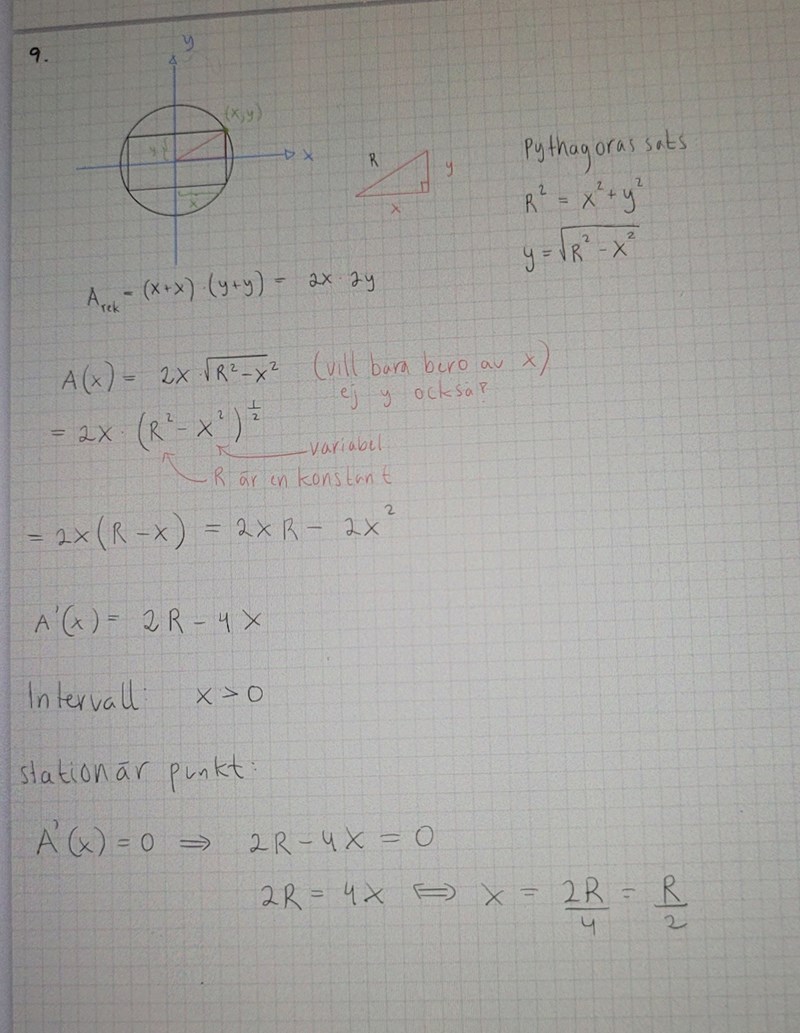 9.
y
(x,y)
x
y
x
R
y
x
Pythagoras sats
R² = x² + y²
y = √(R² - x²)
A_rek = (x+x) · (y+y) = 2x · 2y
A(x) = 2x · √(R² - x²) (vill bara bero av x)
ej y också?
= 2x · (R² - x²)^(1/2)
variabel
R är en konstant
= 2x(R - x) = 2xR - 2x²
A'(x) = 2R - 4x
Intervall: x > 0
stationär punkt:
A'(x) = 0 ⇒ 2R - 4x = 0
2R = 4x ⇔ x = 2R/4 = R/2